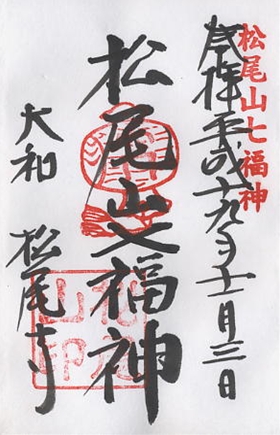 松尾山七福神
奉拝平成十九年十一月三日
松尾山七福神
大和 松尾寺